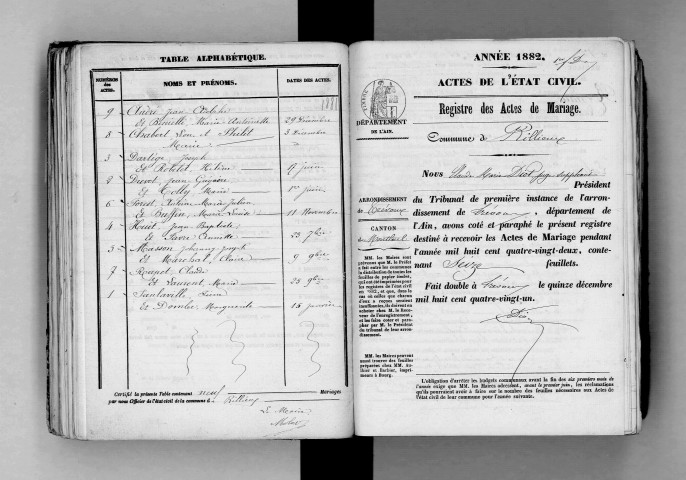 TABLE ALPHABÉTIQUE.
NUMÉROS des ACTES.
NOMS ET PRÉNOMS.
DATES DES ACTES.
1881
9 André Jean
Et Marie Antoinette 29 Decembre
8 Chabert Et Philit 3 Decembre
Marie
3 Joseph
Et Hélène 9 juin
2 Drevet Jean
Et Colly Marie 1er juin
6 Julien
Et Buffin Marie Louise 11 Novembre
4 Huit Jean Baptiste
Et Favre 23 7bre
5 Masson Joseph
Et Marechal, Claire 9 9bre
7 Claude
Et Laurent, Marie 23 9bre
1 Santaville
Et Dombe Marguerite 15 janvier
Certifié la présente Table contenant neuf Mariages
par nous Officier de l'état civil de la commune de Rillieux
Le Maire
ANNÉE 1882.
ACTES DE L'ÉTAT CIVIL.
Registre des Actes de Mariage.
DÉPARTEMENT
DE L'AIN.
Commune de Rillieux
Nous Claude Marie Diot juge suppléant
Président
du Tribunal de première instance de l'arron-
dissement de Trévoux, département de
l'Ain, avons coté et paraphé le présent registre
destiné à recevoir les Actes de Mariage pendant
l'année mil huit cent quatre-vingt-deux, conte-
nant Seize feuillets.
Fait double à Trévoux le quinze décembre
mil huit cent quatre-vingt-un.
ARRONDISSEMENT
de Trévoux
CANTON
de Montluel
MM. les Maires sont
prévenus que M. le Préfet
a fait entre les communes
la distribution de toutes les
feuilles du papier timbré,
qui ont été imprimées pour
les registres de l'état civil
en 1882, et que, dans le
cas où celles que chacun
d'eux a reçues seraient
insuffisantes, ils doivent en
acheter chez M. le Rece-
veur de l'enregistrement,
et les faire coter et para-
pher par M. le Président
du tribunal de leur arron-
dissement.
MM. les Maires peuvent
aussi trouver des feuilles
préparées chez MM. Au-
thier et Barbier, impri-
meurs à Bourg.
L'obligation d'arrêter les budgets communaux avant la fin des six premiers mois de
l'année exige que MM. les Maires adressent, avant le premier juin, les réclamations
qu'ils seraient appelés à faire sur le nombre des feuilles nécessaires aux Actes de
l'état civil de leur commune pour l'année suivante.